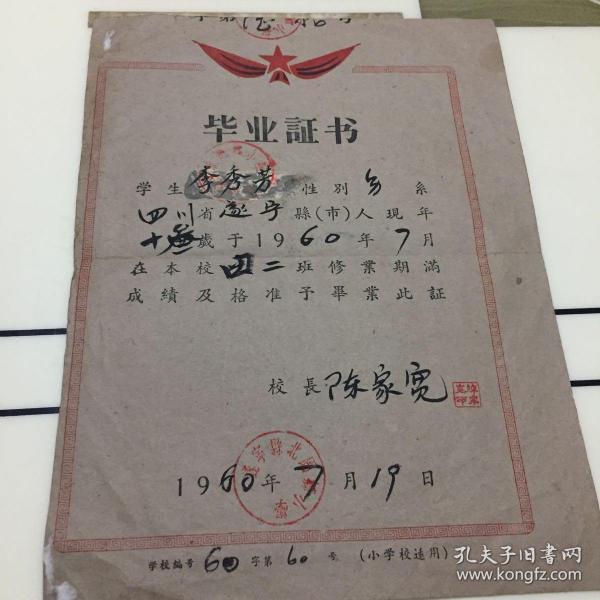 毕业証书
学生李秀芳性别女系
四川省遂宁縣(市)人現年
十歲于1960年7月
在本校四二班修業期滿
成績及格准予畢業此証
校長陈家宽
1960年7月19日
学校编号60字第60号(小学校适用)
孔夫子旧書网
www.kongfz.com